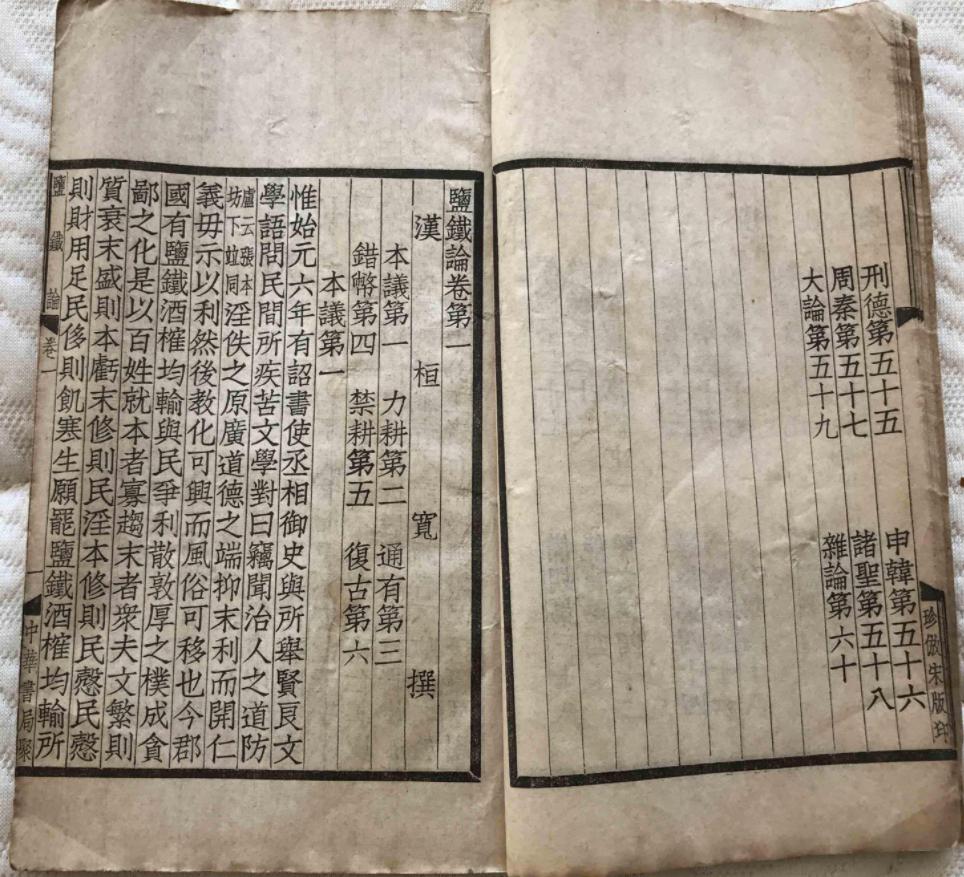 珍倣宋版印
刑德第五十五 申韓第五十六
周秦第五十七 諸聖第五十八
大論第五十九 雜論第六十
鹽鐵論卷第一
漢 桓 寬 撰
本議第一 力耕第二 通有第三
錯幣第四 禁耕第五 復古第六
本議第一
惟始元六年有詔書使丞相御史與所舉賢良文
學語問民間所疾苦文學對曰竊聞治人之道防
盧云張本坊下竝同淫佚之原廣道德之端抑末利而開仁
義毋示以利然後教化可興而風俗可移也今郡
國有鹽鐵酒榷均輸與民爭利散敦厚之樸成貪
鄙之化是以百姓就本者寡趨末者衆夫文繁則
質衰末盛則本虧末修則民淫本修則民慤民慤
則財用足民侈則飢寒生願罷鹽鐵酒榷均輸所
鹽鐵論 卷一 一 中華書局聚